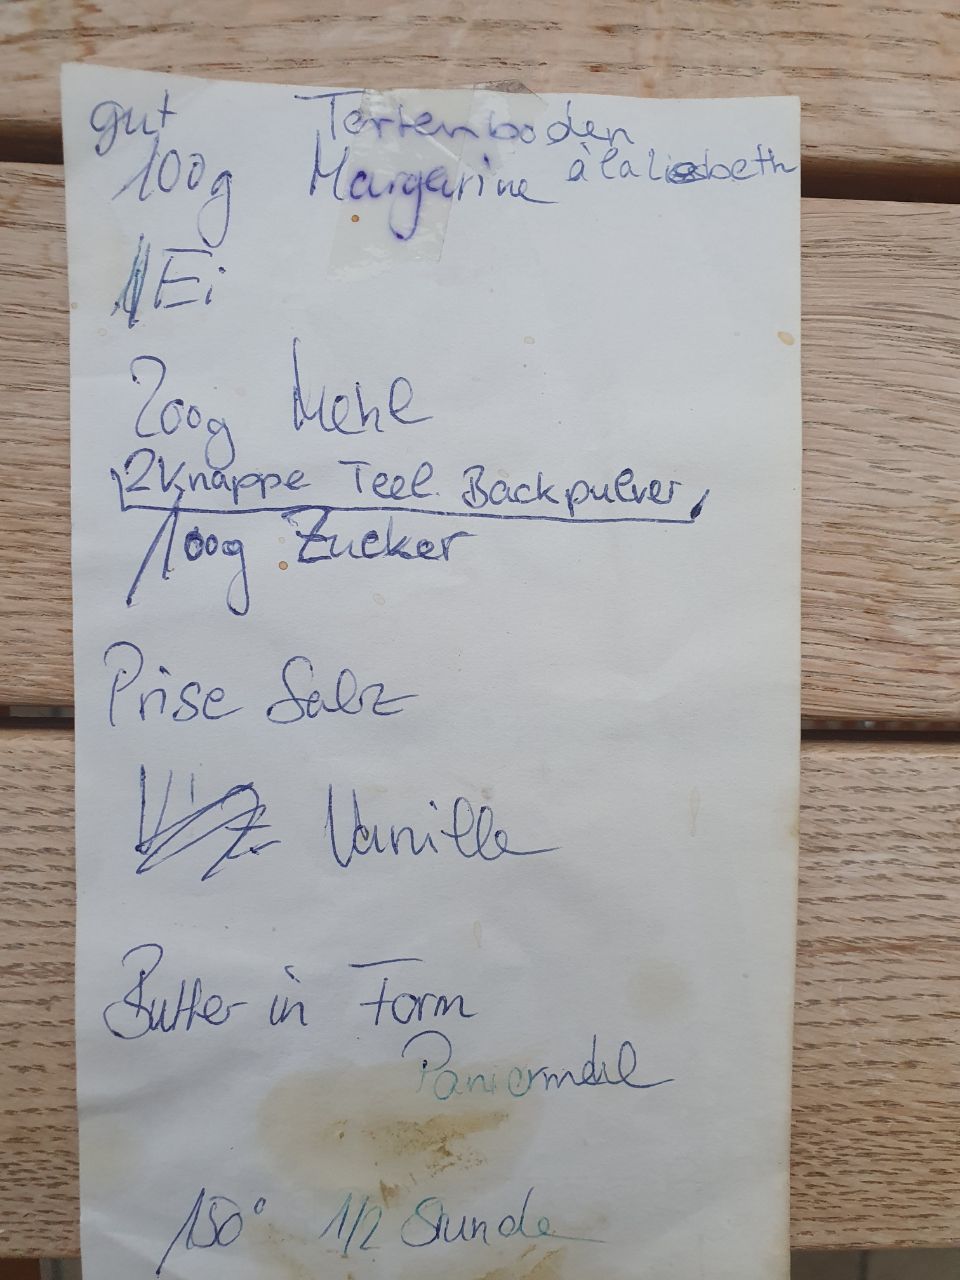 gut Tortenboden
100g Margarine à la Liesbeth
1 Ei
200g Mehl
2 Knappe Teel. Backpulver
100g Zucker
Prise Salz
Vanille
Butter in Form
Paniermehl
150° 1/2 Stunde